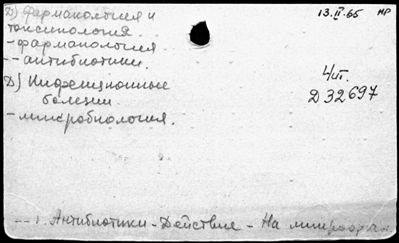 Д) Фармакология и
токсикология.
- фармакология
-- антибиотики.
Д) Инфекционные
болезни
- микробиология.
13.II.65 НР
4/VI.
Д 32697
--1. Антибиотики - Действие - На микроорган.